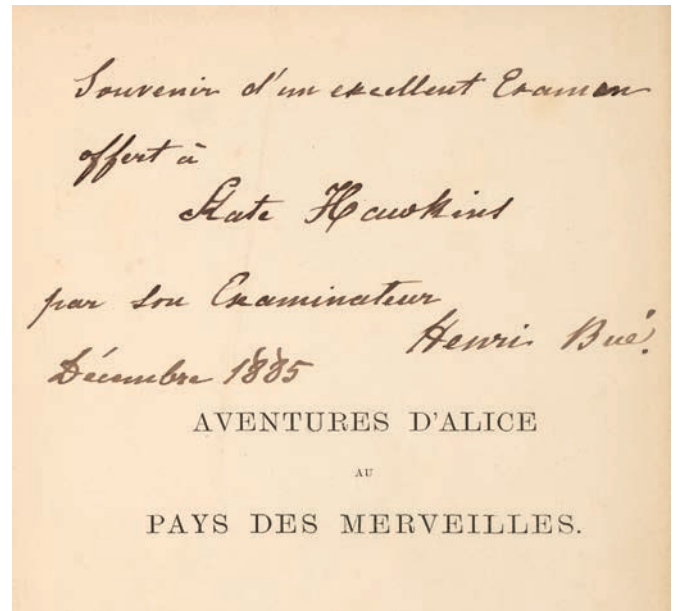 Souvenir d'un excellent Examen
offert à
Kate Hawkins
par son Examinateur
Henri Bué.
Décembre 1885
AVENTURES D'ALICE
AU
PAYS DES MERVEILLES.